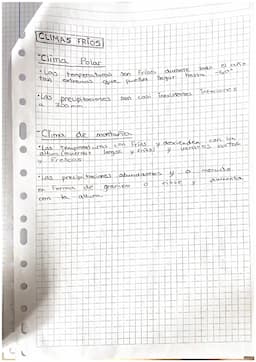 CLIMAS FRÍOS
-Clima Polar
• Las temperaturas son frias durante todo el año
tan extremas que pueden llegar hasta -50°
• Las precipitaciones son casi inexistentes inferiores
a 200mm
-Clima de montaña
• Las temperaturas son frias y descienden con la
altura (inviernos largos y frios) y veranos cortos
y frescos
• Las precipitaciones abundantes y a menudo
en forma de granizo o nieve y aumenta
con la altura.